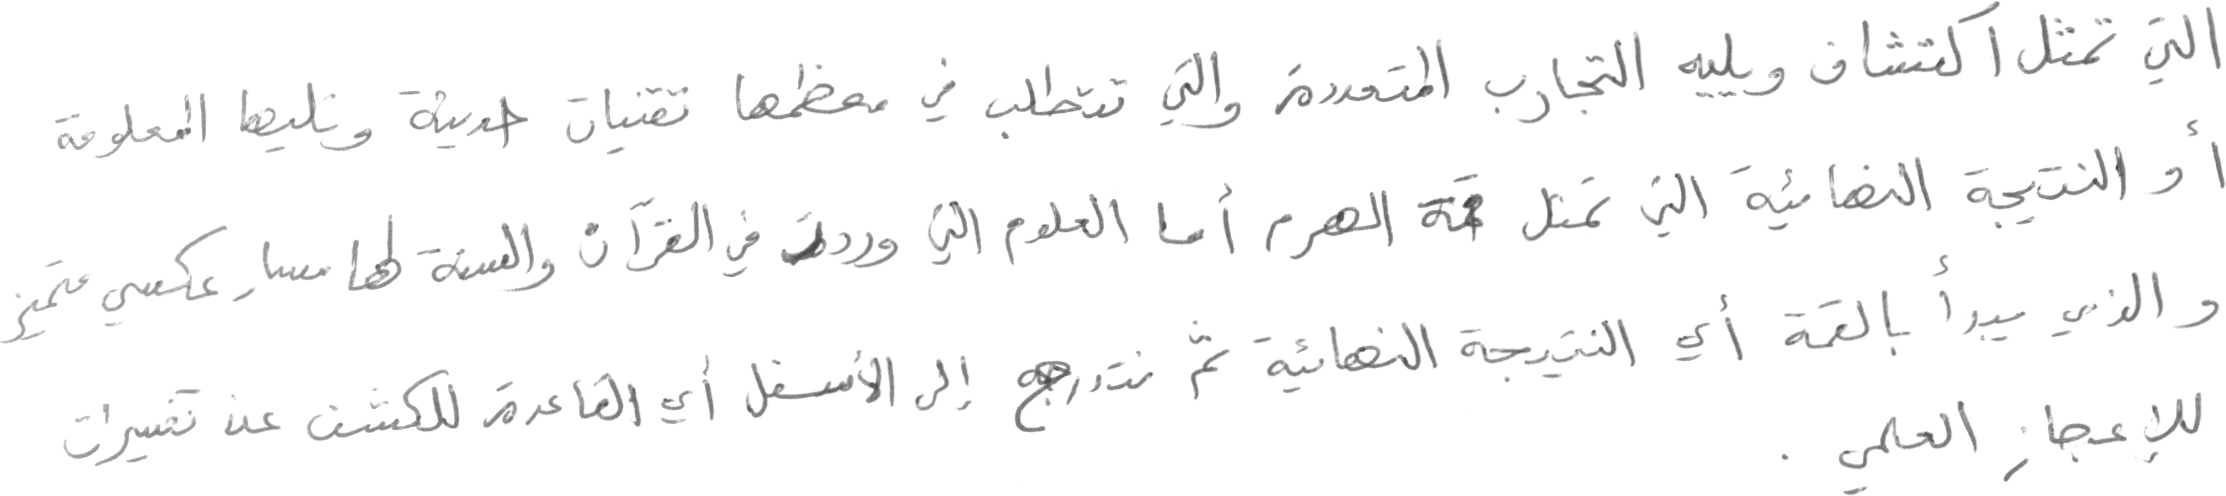 التي تمثل اكتشاف ويليه التجارب المتعددة والتي تتطلب في معظمها تقنيات حديثة وتليها المعلومة
أو النتيجة النهائية التي تمثل قمة الهرم أما العلوم التي وردت في القرآن والسنة لها مسار عكسي متميز
والذي يبدأ بالقمة أي النتيجة النهائية ثم نتدرج إلى الأسفل أي القاعدة للكشف عن تفسيرات
للإعجاز العلمي .